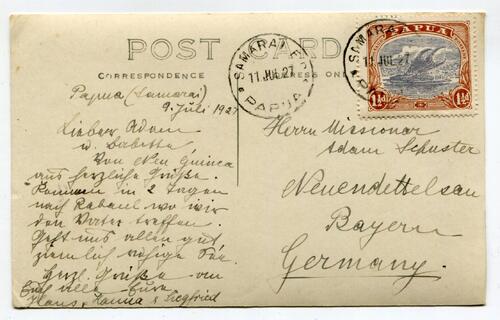 POST CARD
CORRESPONDENCE
ADDRESS ONLY
SAMARAI
11 JUL 27
PAPUA
SAMARAI
11 JUL 27
PAPUA
1½d
1½d
Papua (Samarai)
9. Juli 1927
Lieber Adam
u. Babette
Von Neu Guinea
aus herzliche Grüße.
Kommen in 2 Tagen
nach Rabaul wo wir
den Vater treffen.
Geht uns allen gut
ziemlich ruhige See.
Herzl. Grüße an
Euch alle Eure
Hans, Hanna & Siegfried
Herrn Missionar
Adam Schuster
Neuendettelsau
Bayern
Germany.